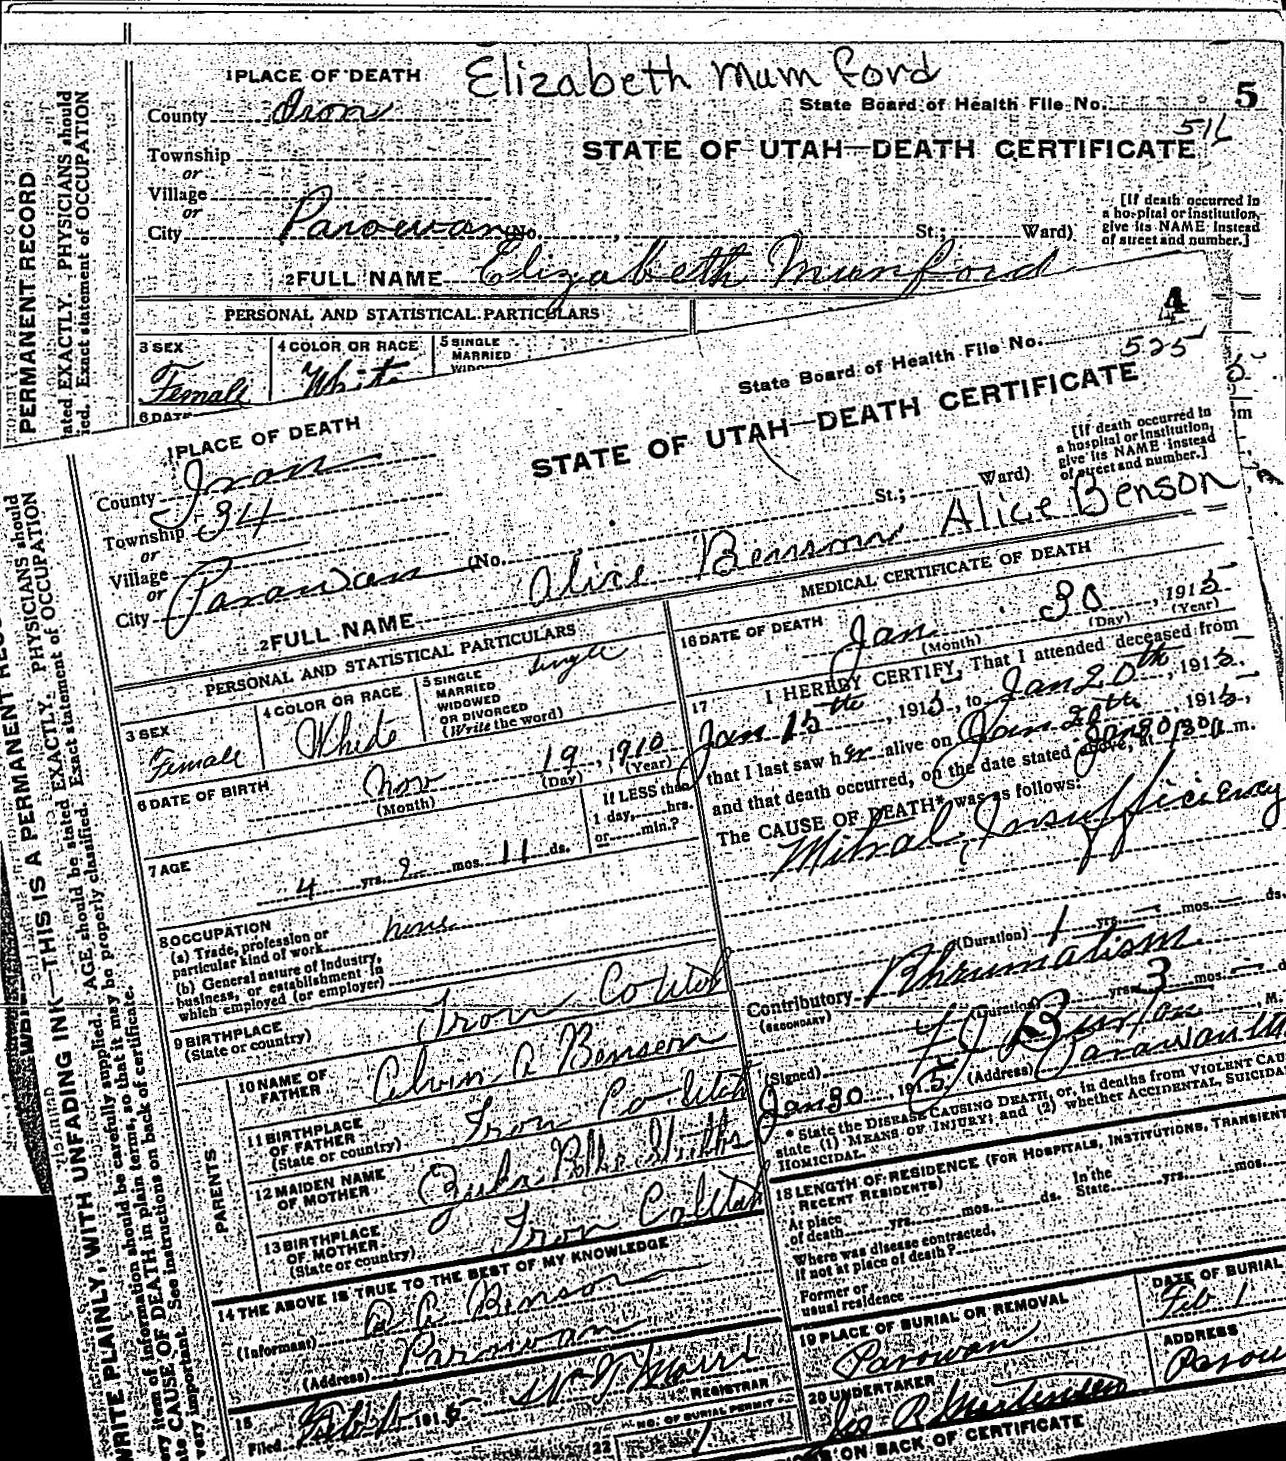 Elizabeth Mumford
1 PLACE OF DEATH
State Board of Health File No. 5
County Iron
516
STATE OF UTAH—DEATH CERTIFICATE
Township
or
Village
or
City Parowan (No. St.; Ward)
[If death occurred in
a hospital or institution,
give its NAME instead
of street and number.]
2 FULL NAME Elizabeth Munford
PERSONAL AND STATISTICAL PARTICULARS
3 SEX
Female
4 COLOR OR RACE
White
5 SINGLE
MARRIED
6 DATE
PERMANENT RECORD
PHYSICIANS should
Exact statement of OCCUPATION
4
State Board of Health File No. 525
1 PLACE OF DEATH
STATE OF UTAH—DEATH CERTIFICATE
County Iron
Township 34
or
Village
or
City Parawan (No. St.; Ward)
[If death occurred in
a hospital or institution,
give its NAME instead
of street and number.]
2 FULL NAME Alice Benson Alice Benson
PERSONAL AND STATISTICAL PARTICULARS
3 SEX
Female
4 COLOR OR RACE
White
5 SINGLE
MARRIED
WIDOWED
OR DIVORCED
(Write the word)
single
6 DATE OF BIRTH
Nov 19, 1910
(Month) (Day) (Year)
7 AGE
4 yrs. 2 mos. 11 ds.
If LESS than
1 day, hrs.
or min.?
8 OCCUPATION
(a) Trade, profession or
particular kind of work none
(b) General nature of industry,
business, or establishment in
which employed (or employer)
9 BIRTHPLACE
(State or country) Iron Co Utah
PARENTS
10 NAME OF
FATHER
Benson
11 BIRTHPLACE
OF FATHER
(State or country) Iron Co Utah
12 MAIDEN NAME
OF MOTHER
13 BIRTHPLACE
OF MOTHER
(State or country) Iron Co Utah
14 THE ABOVE IS TRUE TO THE BEST OF MY KNOWLEDGE
(Informant) A A Benson
(Address) Parowan
15
Filed Feb 1, 1915
REGISTRAR
NO. OF BURIAL PERMIT
22
1
MEDICAL CERTIFICATE OF DEATH
16 DATE OF DEATH
Jan. 30, 1915
(Month) (Day) (Year)
17 I HEREBY CERTIFY, That I attended deceased from
Jan 15th, 1915, to Jan 20th, 1915,
that I last saw her alive on Jan 20th, 1915,
and that death occurred, on the date stated above, at m.
The CAUSE OF DEATH* was as follows:
Mitral Insufficiency
(Duration) 1 yrs. mos. ds.
Contributory Rheumatism
(SECONDARY)
(Duration) yrs. 3 mos.
(Signed) Burton, M.
Jan 30, 1915 (Address) Parawan
* State the DISEASE CAUSING DEATH, or, in deaths from VIOLENT
state (1) MEANS OF INJURY; and (2) whether ACCIDENTAL,
HOMICIDAL.
18 LENGTH OF RESIDENCE (FOR HOSPITALS, INSTITUTIONS,
RECENT RESIDENTS)
At place
of death yrs. mos. ds. In the
State yrs. mos.
Where was disease contracted,
if not at place of death?
Former or
usual residence
19 PLACE OF BURIAL OR REMOVAL
Parowan
DATE OF BURIAL
Feb 1
20 UNDERTAKER
ADDRESS
ON BACK OF CERTIFICATE
WRITE PLAINLY, WITH UNFADING INK—THIS IS A PERMANENT
item of information should be carefully supplied. AGE should be stated EXACTLY. PHYSICIANS should
CAUSE OF DEATH in plain terms, so that it may be properly classified. Exact statement of OCCUPATION
very important. See instructions on back of certificate.